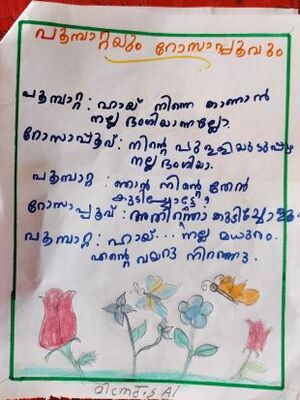 പൂമ്പാറ്റയും റോസാപ്പൂവും
പൂമ്പാറ്റ : ഹായ് നിന്നെ കാണാൻ
നല്ല ഭംഗിയാണല്ലോ.
റോസാപ്പൂവ് : നിന്റെ പുള്ളിയുടുപ്പും
നല്ല ഭംഗിയാ.
പൂമ്പാറ്റ : ഞാൻ നിന്റെ തേൻ
കുടിച്ചോട്ടെ?
റോസാപ്പൂവ് : അതിനെന്താ കുടിച്ചോളൂ
പൂമ്പാറ്റ : ഹായ്... നല്ല മധുരം.
എന്റെ വയറു നിറഞ്ഞു.